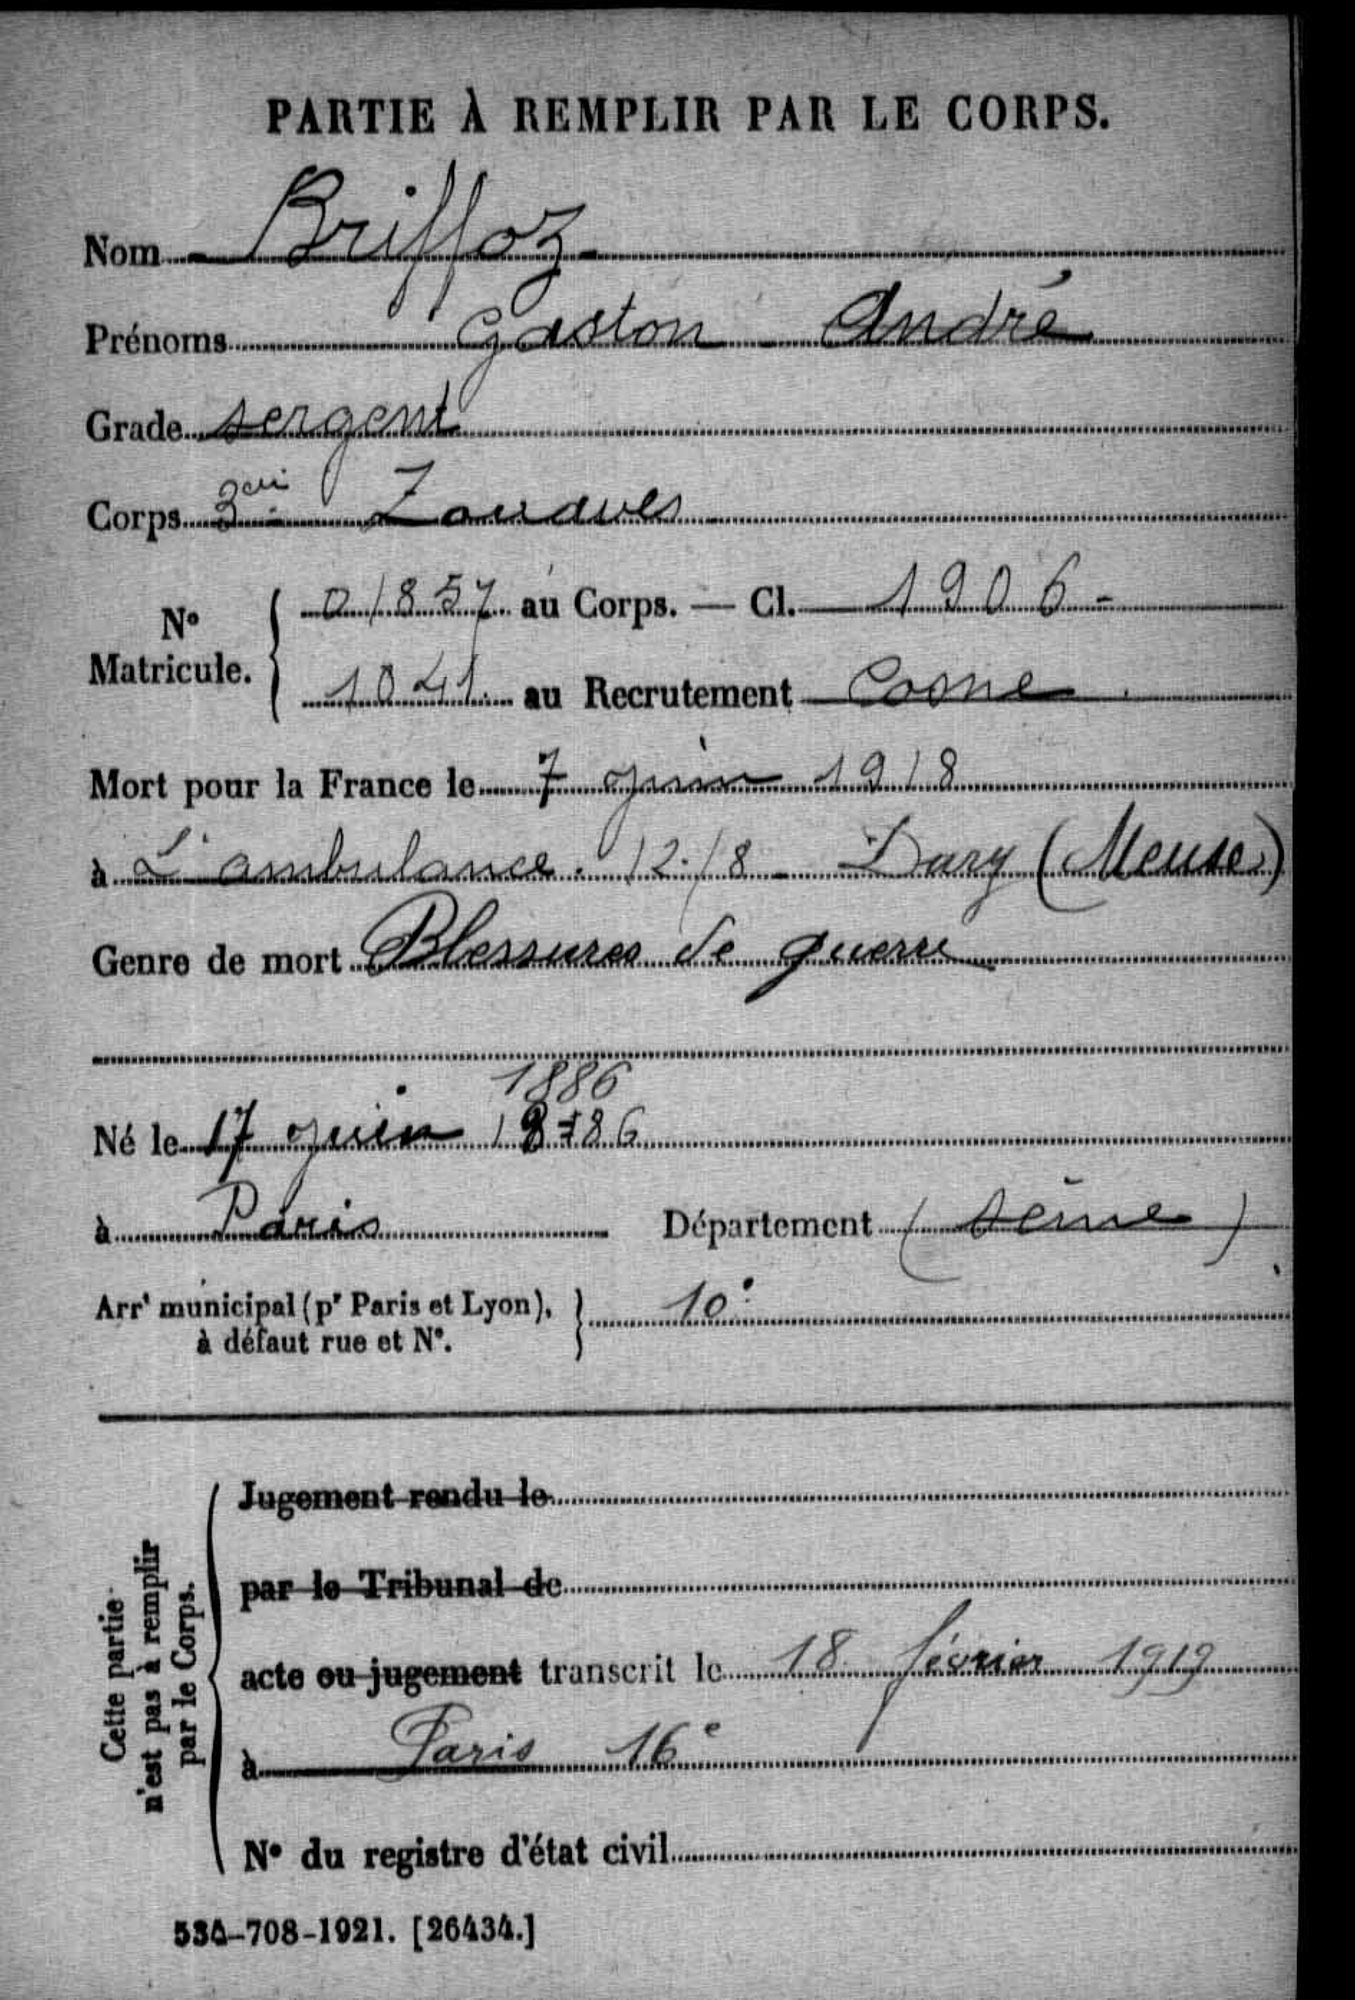 PARTIE À REMPLIR PAR LE CORPS.
Nom Briffoz
Prénoms Gaston André
Grade sergent
Corps 3eme Zouaves
N° Matricule. 01857 au Corps. — Cl. 1906
1041 au Recrutement Cosne
Mort pour la France le 7 juin 1918
à L'ambulance 12/8 - Dury (Meuse)
Genre de mort Blessures de guerre
1886
Né le 17 juin 1886
à Paris Département (seine)
Arrt municipal (pr Paris et Lyon), à défaut rue et N°. 10e
Cette partie n'est pas à remplir par le Corps.
Jugement rendu le
par le Tribunal de
acte ou jugement transcrit le 18 février 1919
à Paris 16e
N° du registre d'état civil
534-708-1921. [26434.]